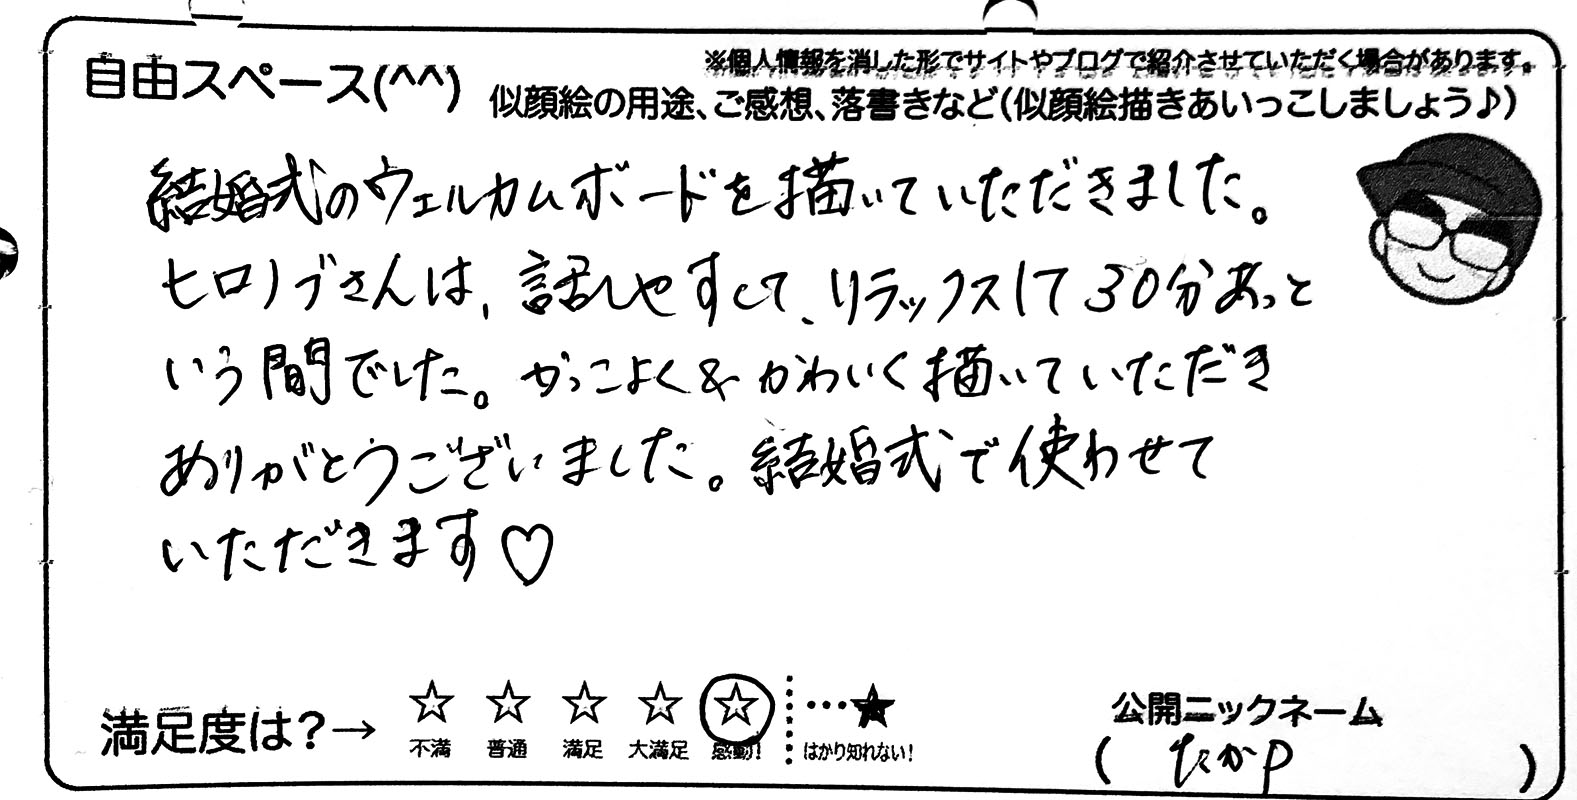 自由スペース(^^)
※個人情報を消した形でサイトやブログで紹介させていただく場合があります。
似顔絵の用途、ご感想、落書きなど(似顔絵描きあいっこしましょう♪)
結婚式のウェルカムボードを描いていただきました。
ヒロノブさんは、話しやすくて、リラックスして30分あっと
いう間でした。かっこよく&かわいく描いていただき
ありがとうございました。結婚式で使わせて
いただきます♡
満足度は?→ ☆ ☆ ☆ ☆ ☆ …★
不満 普通 満足 大満足 感動! はかり知れない!
公開ニックネーム
( たかP )